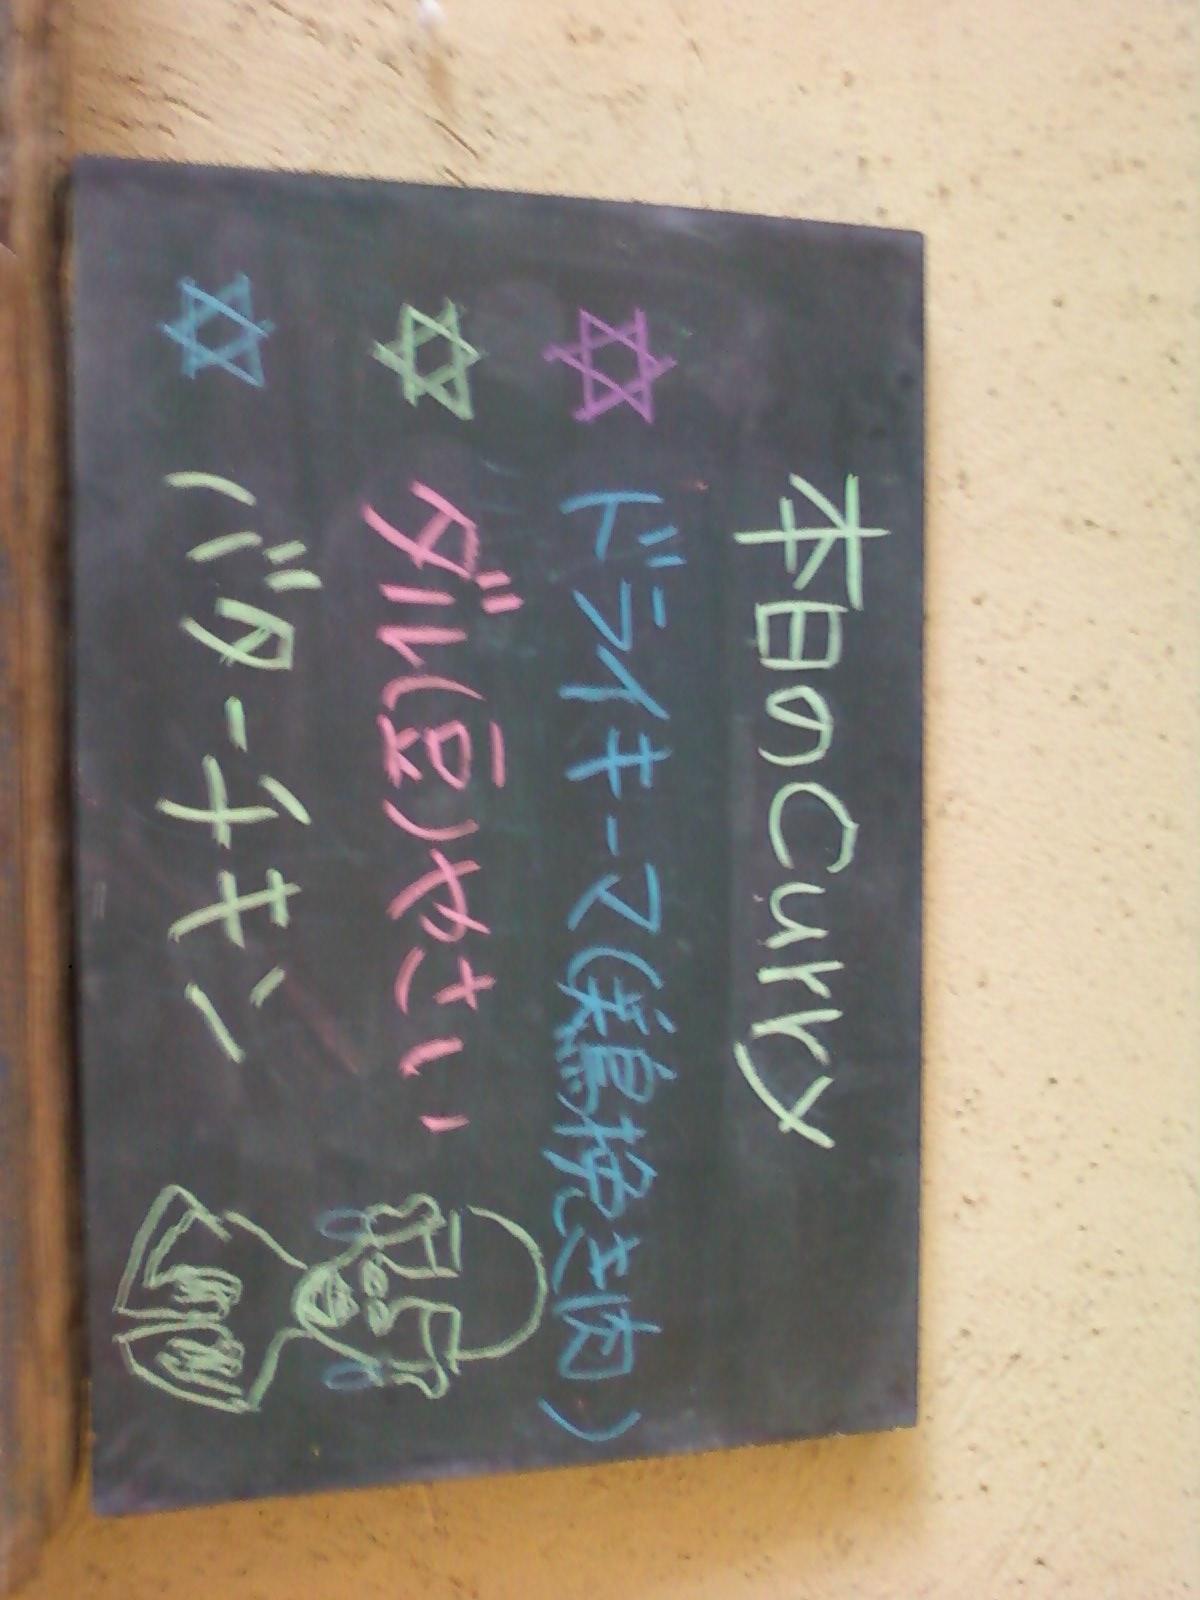 本日のCurry
☆ドライキーマ(若鶏挽き肉)
☆ダル(豆)やさい
☆バターチキン